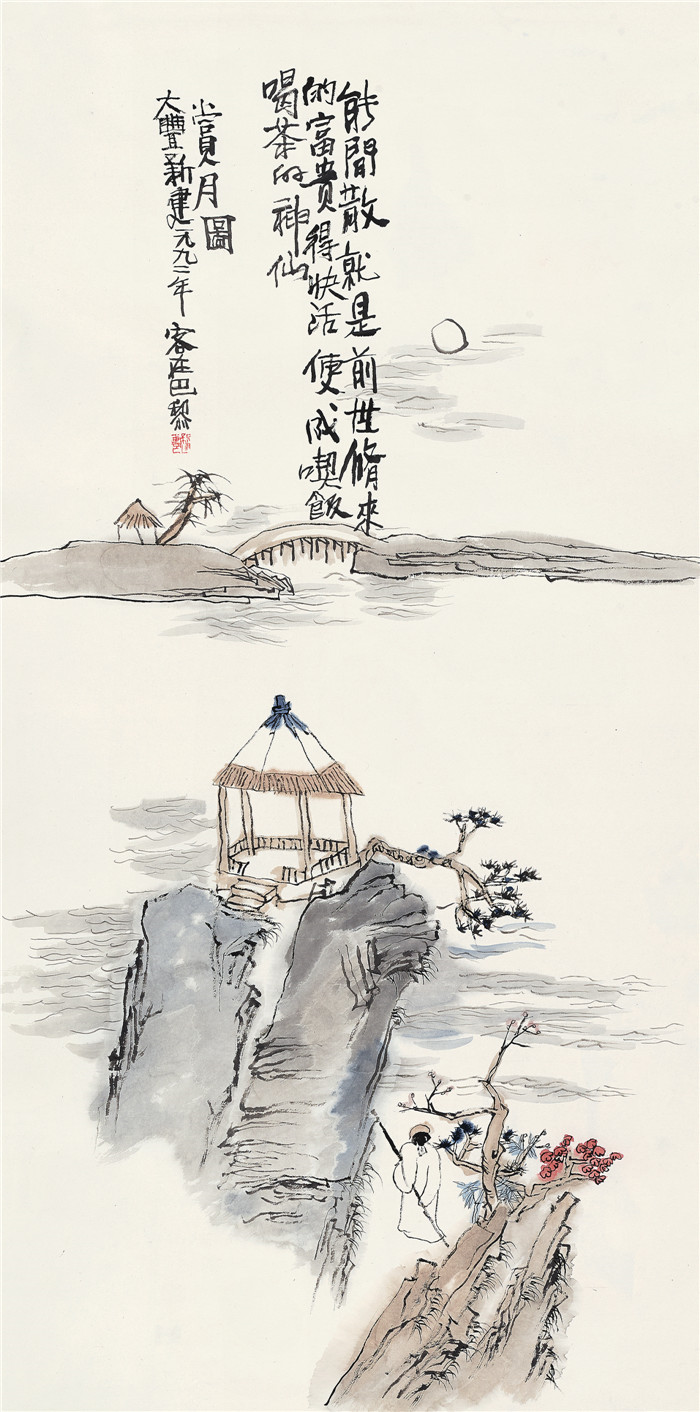 能間散就是前世脩來
的富貴得快活便成喫飯
喝茶的神仙
賞月圖
大豐新建一九九二年客在巴黎